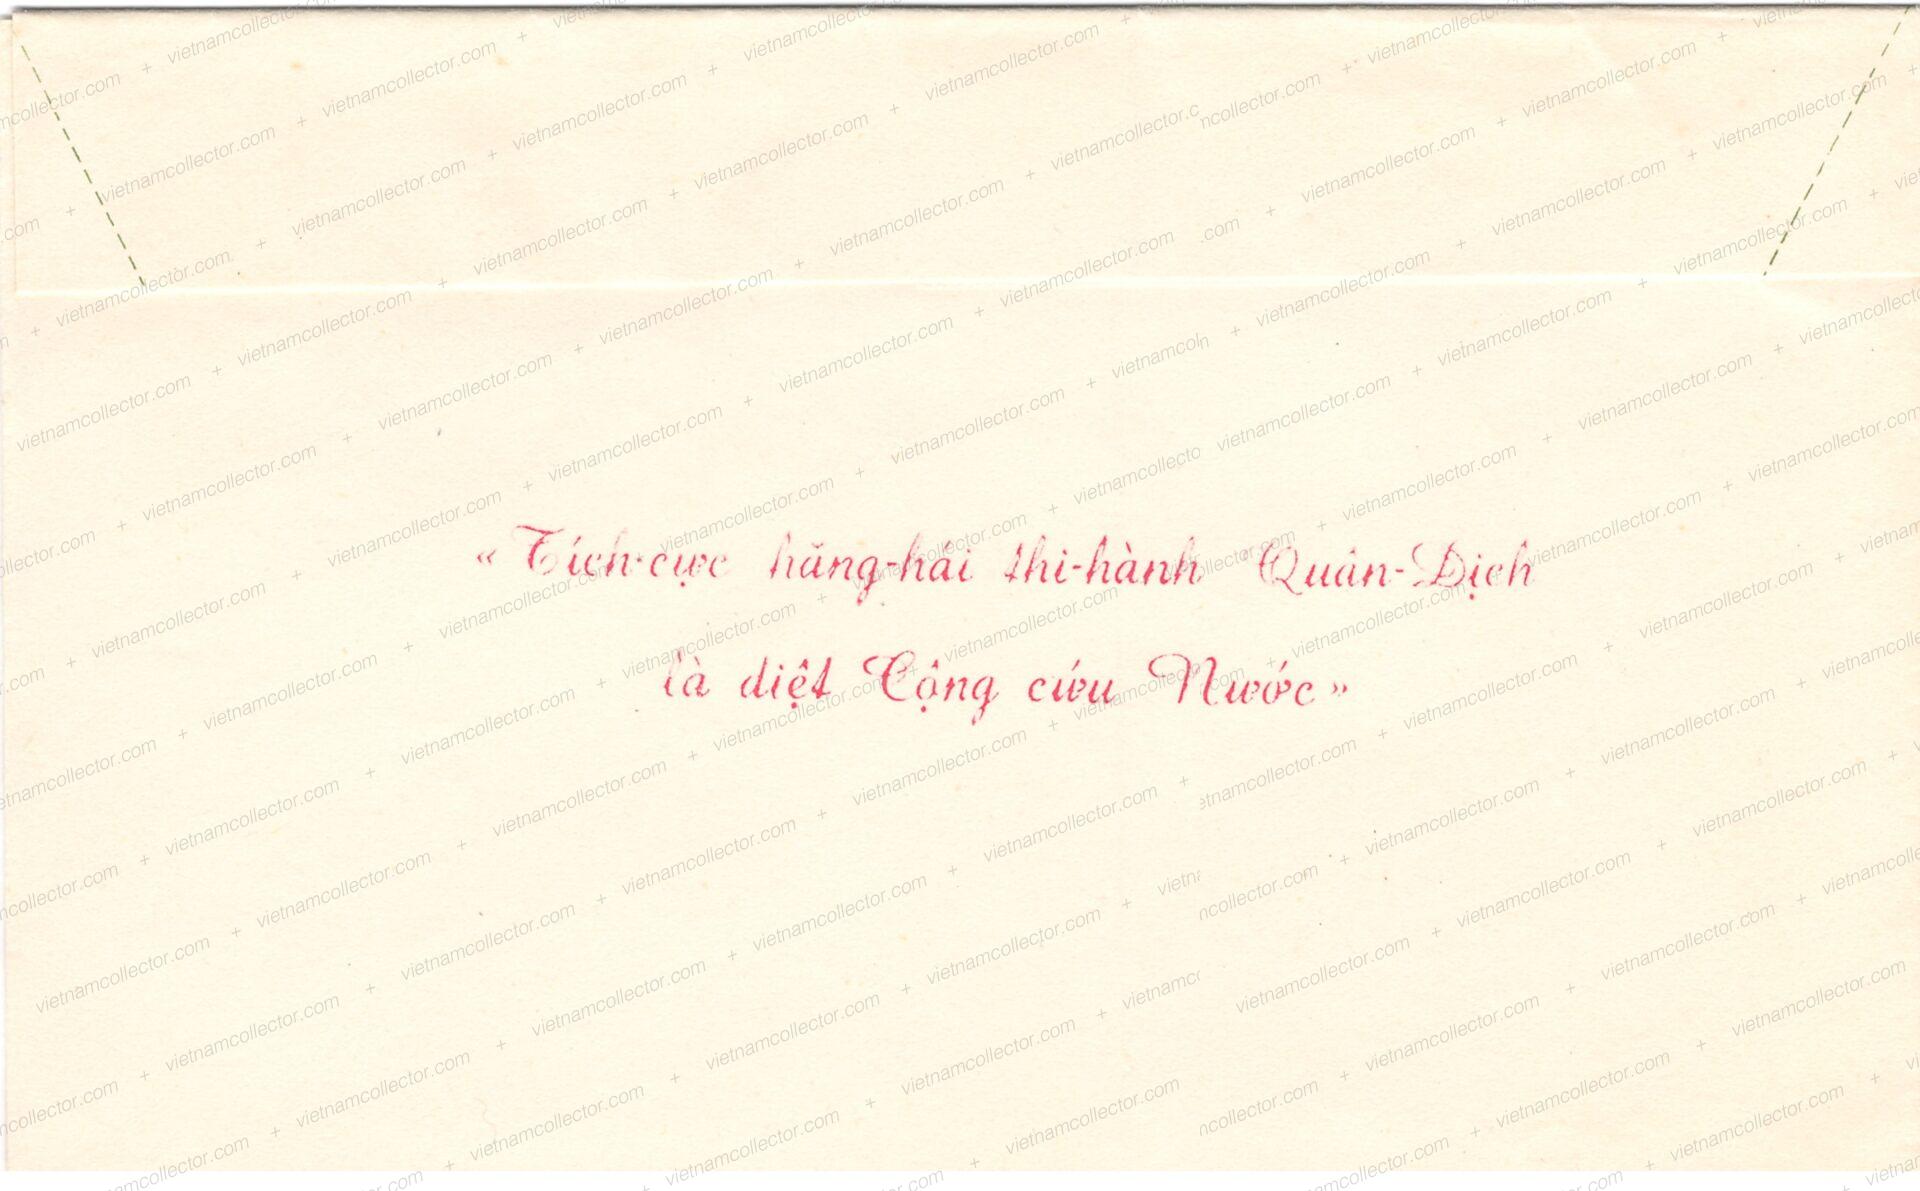 « Tích-cực hăng-hái thi-hành Quân-Dịch
là diệt Cộng cứu Nước »
vietnamcollector.com